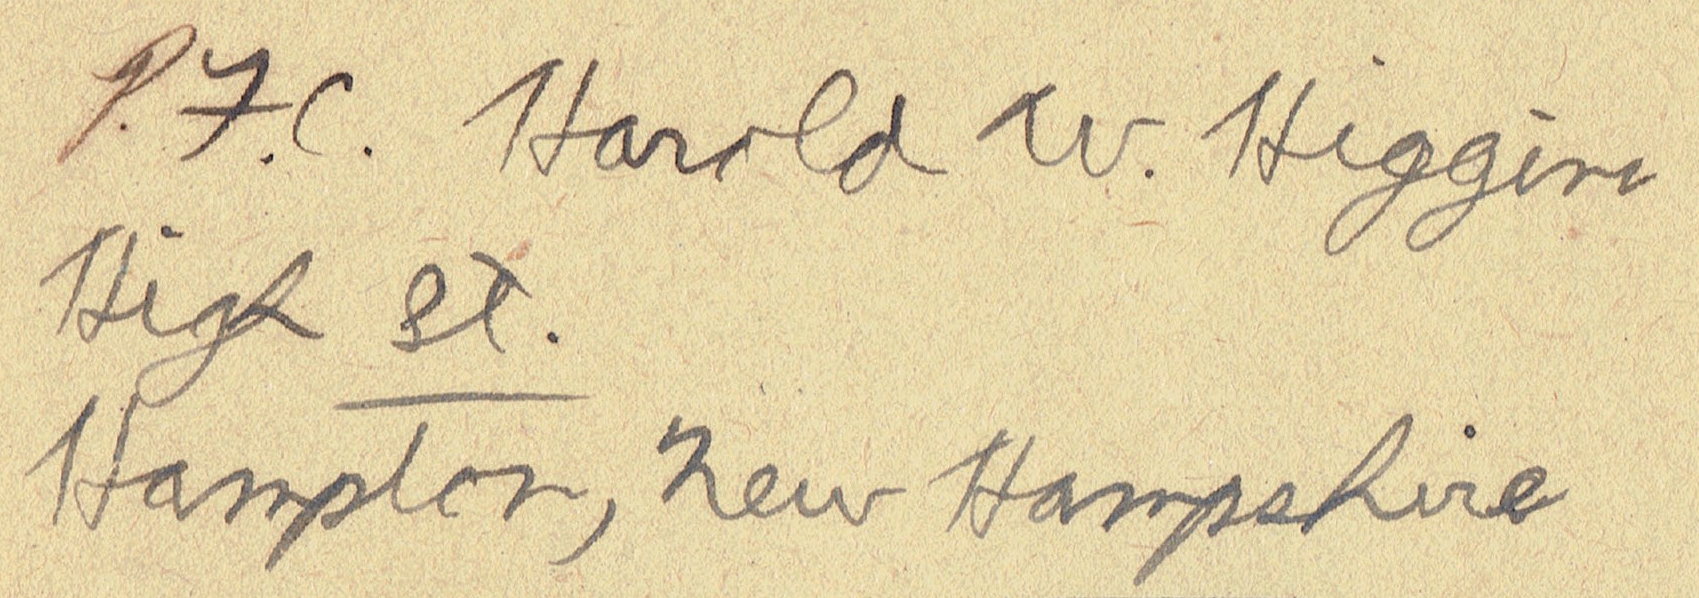 P.F.C. Harold W. Higgins
High St.
Hampton, New Hampshire